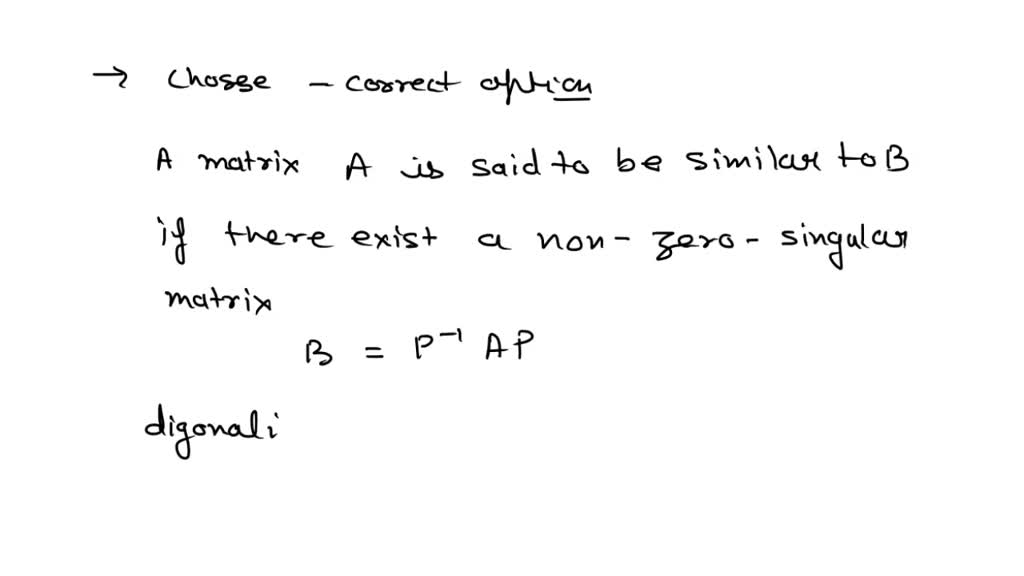 → Chosse - correct option
A matrix A is said to be similar to B
if there exist a non-zero-singular
matrix
B = P⁻¹ AP
digonali